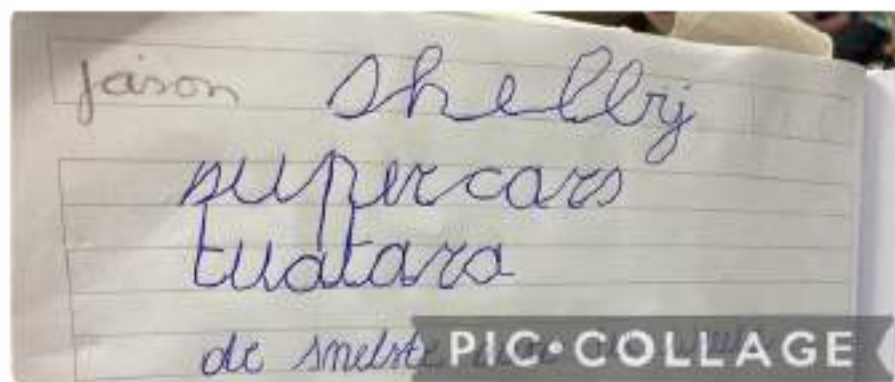 jason shellby
supercars
tuatara
de snelste
PIC•COLLAGE